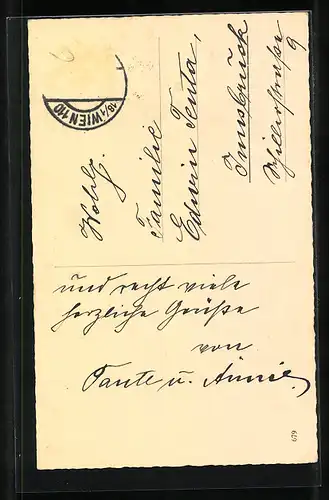 16/1 WIEN 110
Wohlg.
Familie
Edwin Tenta,
Innsbruck
Schillerstraße
9
und recht viele
herzliche Grüße
von
Tante u. Annie.
679